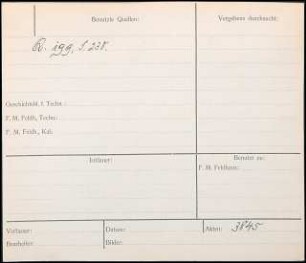 Benutzte Quellen:
Vergebens durchsucht:
Q. igg, S. 238.
Geschichtsbl. f. Techn.:
F. M. Feldh., Techn:
F. M. Feldh., Kult:
Irrtümer:
Benutzt zu:
F. M. Feldhaus:
Verfasser:
Datum:
Akten: 3845
Bearbeiter:
Bilder: